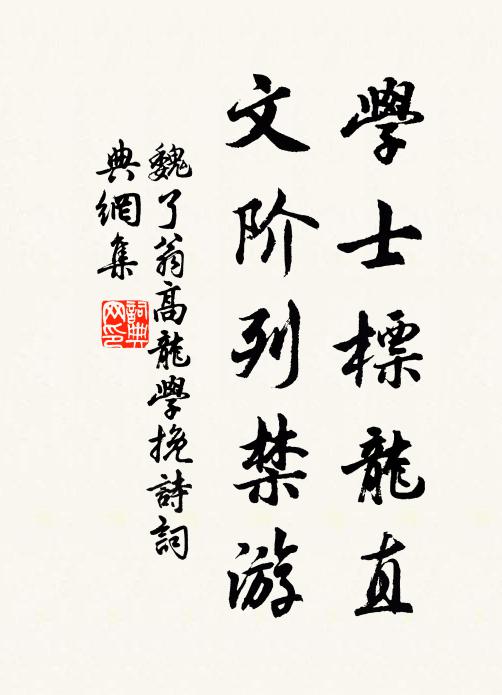 學士標龍直
文阶列禁游
魏了翁高龍學挽詩詞
典網集
詞典
网印